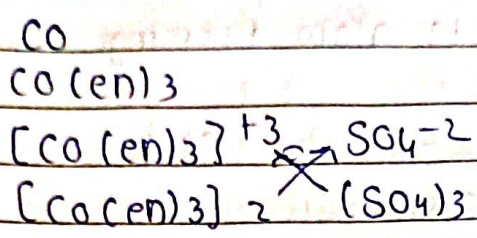 CO
CO (en) 3
[CO (en) 3] +3 SO4 -2
[CO (en) 3] 2 (SO4) 3